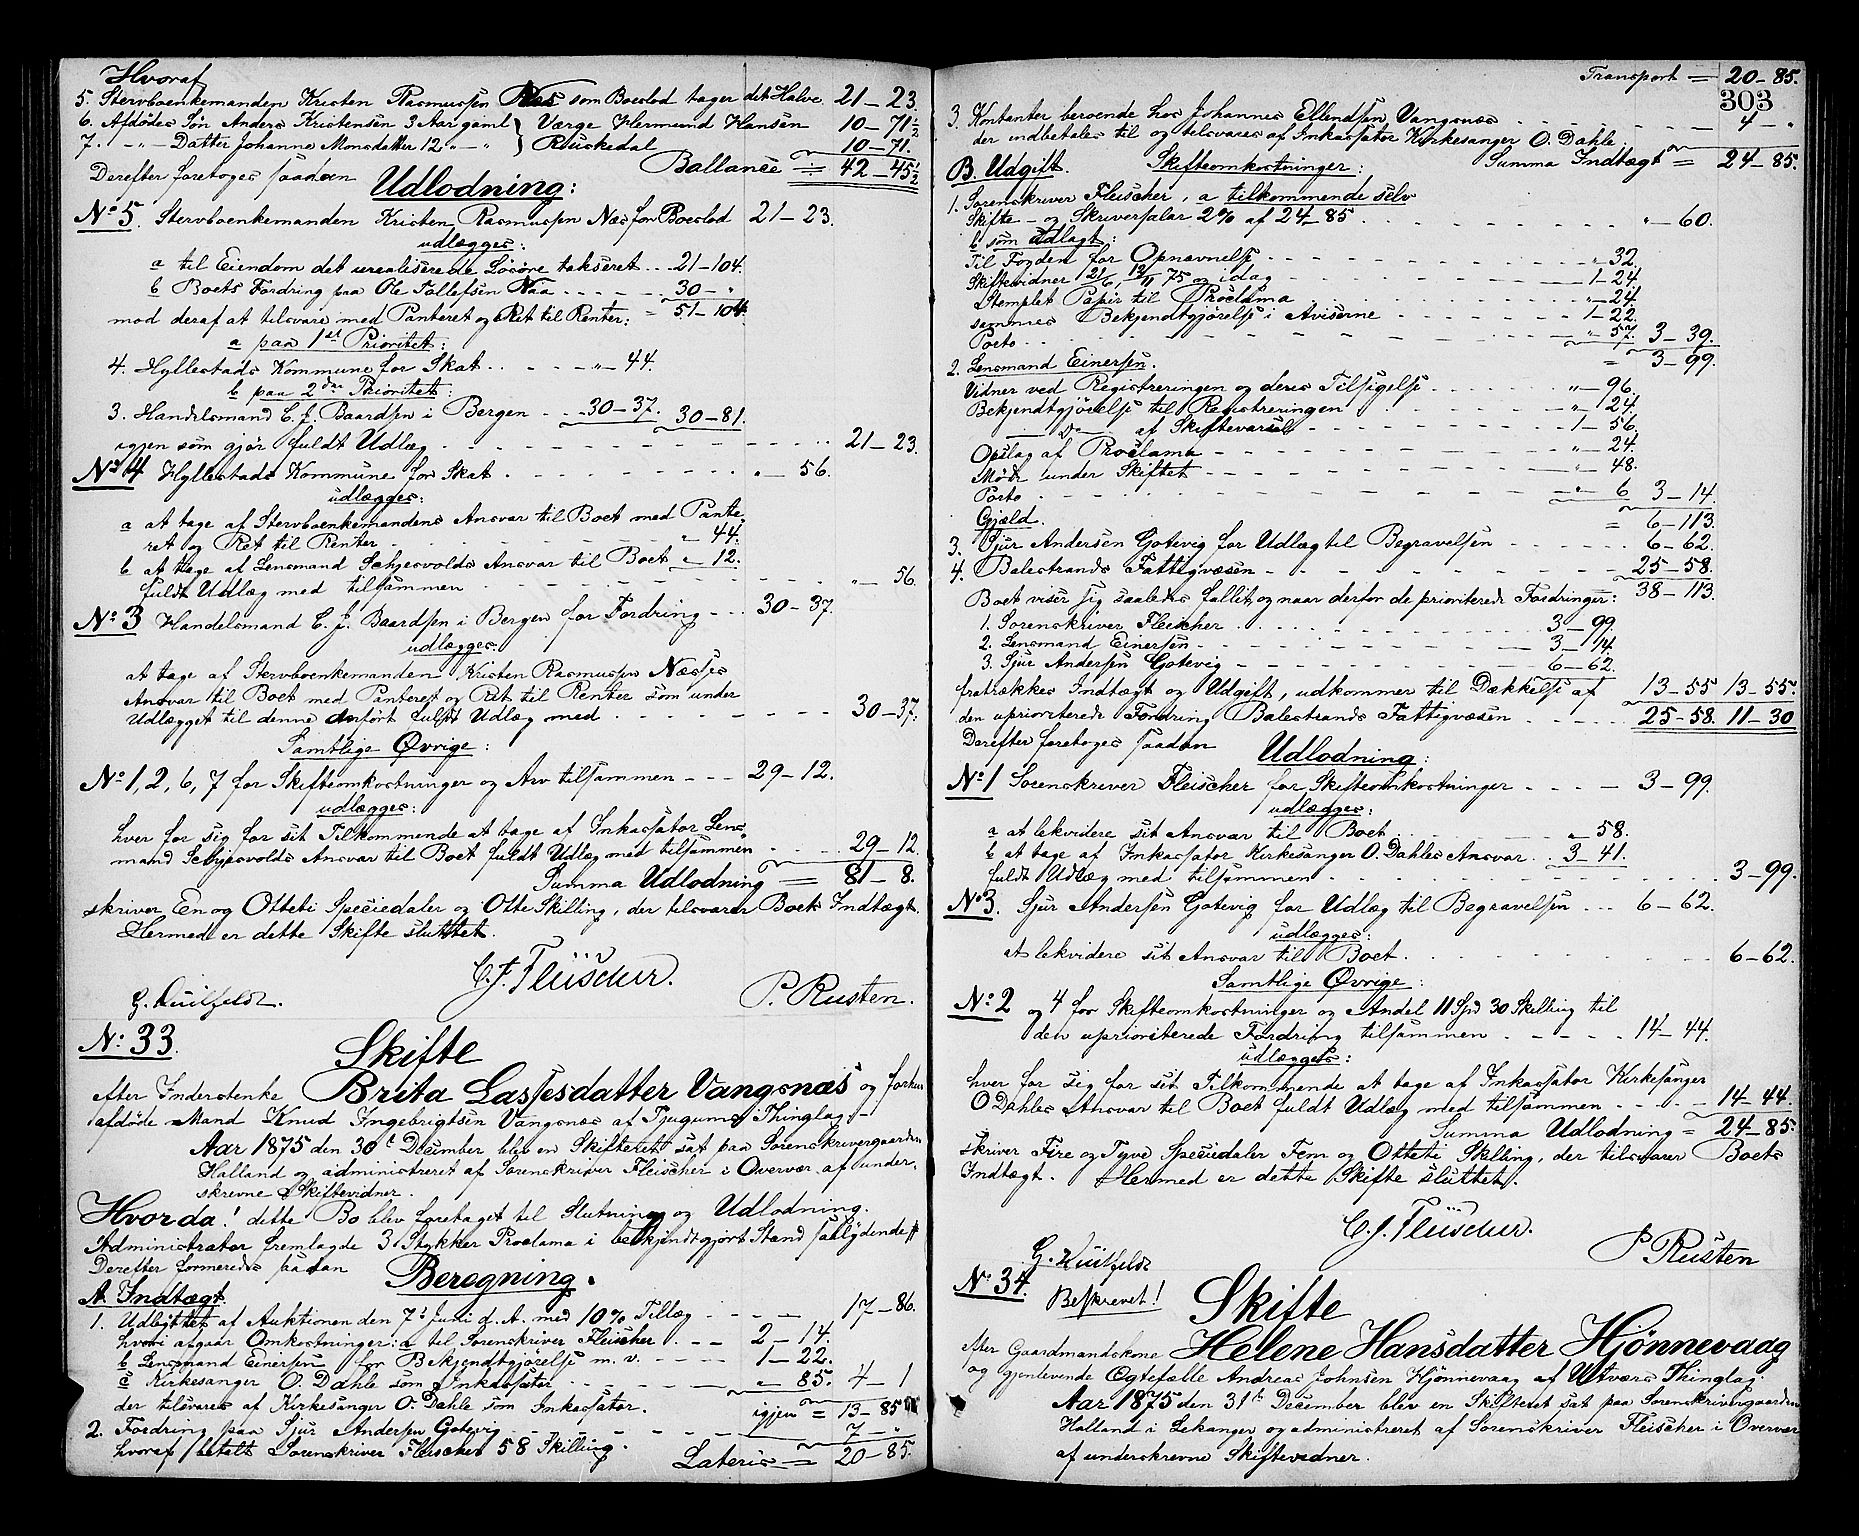 Hvoraf
5. Stervboenkemanden Kristen Rasmussen Næs som Boeslod tager det Halve 21–23.
6. Afdødes Søn Anders Kristensen 3 Aar gaml } Værge Hermund Hansen 10–71½
7. –"– Datter Johanne Monsdatter 12 "–" } Risckedal 10–71.
Ballance = 42–45½
Derefter foretoges saadan Udlodning:
No 5. Stervboenkemanden Kristen Rasmussen Næs for Boeslod 21–23.
udlægges:
a til Eiendom det urealiserede Løsøre takseret . . 21–104.
b Boets Fordring paa Ole Tollefsen Naa . . . . 30–"
mod deraf at tilsvare med Panteret og Ret til Renter: = 51–104.
a paa 1ste Prioritet:
4. Hyllestads Kommune for Skat . . . . "–44.
b paa 2den Prioritet:
3. Handelsmand C. J. Baardsen i Bergen . . 30–37. 30–81.
igjen som gjør fuldt Udlæg . . . . 21–23.
No 4 Hyllestads Kommune for Skat . . . . "–56.
udlægges:
a at tage af Stervboenkemandens Ansvar til Boet med Pante
ret og Ret til Renter . . . . "–44.
b at tage af Lensmand Sehjesvolds Ansvar til Boet "–12.
fuldt Udlæg med tilsammen . . . . "–56.
No 3 Handelsmand C. J. Baardsen i Bergen for Fordring . . . 30–37.
udlægges.
at tage af Stervboenkemanden Kristen Rasmussen Næsses
Ansvar til Boet med Panteret og Ret til Renter som under
Udlægget til denne anført fuldt Udlæg med . . . . 30–37.
Samtlige Øvrige:
No 1, 2, 6, 7 for Skifteomkostninger og Arv tilsammen – – – 29–12.
udlægges:
hver for sig for sit Tilkommende at tage af Inkassator Lens
mand Sehjesvolds Ansvar til Boet fuldt Udlæg med tilsammen . . . . 29–12.
Summa Udlodning = 81–8.
skriver En og Otteti Speciedaler og Otte Skilling, der tilsvarer Boets Indtægt.
Hermed er dette Skifte sluttet.
C. J. Fleischer.
G. Huitfeldt. P. Rusten.
No: 33.
Skifte
efter Inderstenke Brita Lassesdatter Vangsnæs og forhen
afdøde Mand Knud Ingebrigtsen Vangsnæs af Tjugums Thinglag.
Aar 1875 den 30te December blev en Skifteret sat paa Sorenskrivergaarden
Holland og administreret af Sorenskriver Fleischer i Overvær af under-
skrevne Skiftevidner.
Hvorda! dette Bo blev foretaget til Slutning og Udlodning.
Administrator fremlagde 3 Stykker Proclama i bekjendtgjort Stand saalydende #
Derefter formeredes saadan Beregning.
A. Indtægt.
1. Udbyttet af Auktionen den 7de Juni d. A. med 10% Tillæg – – – 17–86.
hvori afgaar Omkostninger: a til Sorenskriver Fleischer . . . 2–14.
b Lensmand Einersen for Bekjendtgjørelse m. v. . . . . 1–22.
c Kirkesanger O. Dahle som Inkassator . . . . "–85. 4–1
der tilsvares af Kirkesanger O. Dahle som Inkassator. igjen = 13–85
2. Fordring paa Sjur Andersen Gotevig . . . . 7–"
hvoraf betalt Sorenskriver Fleischer 58 Skilling. Lateris = 20–85.
Transport = 20–85.
303
3. Kontanter beroende hos Johannes Ellendsen Vangsnæs . . . . 4–"
der indbetales til og tilsvares af Inkassator Kirkesanger O. Dahle
Summa Indtægt = 24–85.
B. Udgift. Skifteomkostninger:
1. Sorenskriver Fleischer, a tilkommende selv
Skifte- og Skriversalar 2% af 24–85 . . . . "–60.
b som udlagt:
Til Fogden for Opnavnelse . . . . "–32.
Skiftevidner 21/6, 12/11 75 og idag . . . . 1–24.
Stemplet Papir til Proclama . . . . "–24.
sammes Bekjendtgjørelse i Aviserne . . . . 1–22.
Porto . . . . "–57. 3–39.
= 3–99.
2. Lensmand Einersen.
Vidner ved Registreringen og deres Tilsigelse . . . . "–96.
Bekjendtgjørelse til Registreringen . . . . "–24
–do– af Skiftevarsel . . . . 1–56.
Opslag af Proclama . . . . "–24.
Møde under Skiftet . . . . "–48.
Porto . . . . "–6 3–14.
Gjæld. = 6–113.
3. Sjur Andersen Gotevig for Udlæg til Begravelsen . . . . 6–62.
4. Balestrands Fattigvæsen . . . . 25–58.
Boet viser sig saaledes fallit, og naar derfor de prioriterede Fordringer: 38–113.
1. Sorenskriver Fleischer . . . . 3–99.
2. Lensmand Einersen . . . . 3–14.
3. Sjur Andersen Gotevig . . . . 6–62.
fratrækkes Indtægt og Udgift, udkommer til Dækkelse af 13–55 13–55.
den uprioriterede Fordring Balestrands Fattigvæsen . . . . 25–58. 11–30
Derefter foretoges saadan Udlodning:
No 1 Sorenskriver Fleischer for Skifteomkostninger . . . . 3–99.
udlægges:
a at lekvidere sit Ansvar til Boet . . . . "–58.
b at tage af Inkassator Kirkesanger O. Dahles Ansvar . . 3–41.
fuldt Udlæg med tilsammen . . . . 3–99.
No 3. Sjur Andersen Gotevig for Udlæg til Begravelsen . . . 6–62.
udlægges:
at lekvidere sit Ansvar til Boet . . . . 6–62.
Samtlige Øvrige:
No 2 og 4 for Skifteomkostninger og Andel 11 Spd 30 Skilling til
den uprioriterede Fordring tilsammen . . . . 14–44.
udlægges:
hver for sig for sit Tilkommende at tage af Inkassator Kirkesanger
O Dahles Ansvar til Boet fuldt Udlæg med tilsammen . . . . 14–44.
Summa Udlodning = 24–85.
skriver Fire og Tyve Speciedaler Fem og Otteti Skilling, der tilsvarer Boets
Indtægt. Hermed er dette Skifte sluttet.
C. J. Fleischer.
G. Huitfeldt P Rusten
No 34.
Beskrevet!
Skifte
efter Gaardmandskone Helene Hansdatter Hjønnevaag
og gjenlevende Ægtefælle Andreas Johnsen Hjønnevaag af Utvær Thinglag.
Aar 1875 den 31te December blev en Skifteret sat paa Sorenskrivergaarden
Holland i Lekanger og administreret af Sorenskriver Fleischer i Overvær
af underskrevne Skiftevidner.